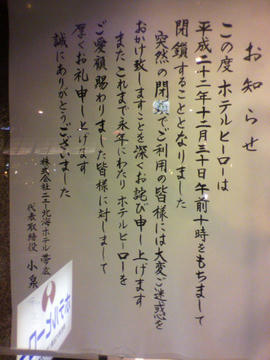 お知らせ
この度 ホテルヒーローは
平成二十二年十二月三十日午前十時をもちまして
閉鎖することとなりました
突然の閉鎖でご利用の皆様には大変ご迷惑を
おかけ致しますことを深くお詫び申し上げます
また これまで永年にわたり ホテルヒーローを
ご愛顧賜わりました皆様に対しまして
厚くお礼申し上げます
誠にありがとうございました
株式会社ニュー北海ホテル 帯広
代表取締役 小泉